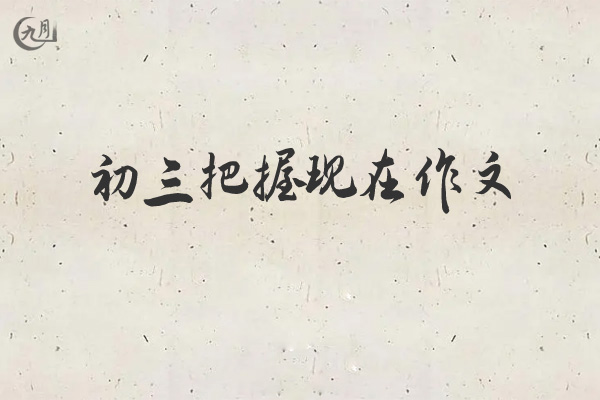 九月
初三把握现在作文